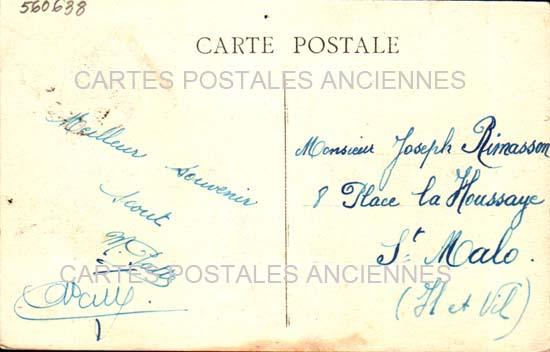 560638
CARTE POSTALE
CARTES POSTALES ANCIENNES
Meilleur souvenir
Scout
Monsieur Joseph Rimasson
8 Place la Houssaye
St Malo.
(Il et Vil)
CARTES POSTALES ANCIENNES